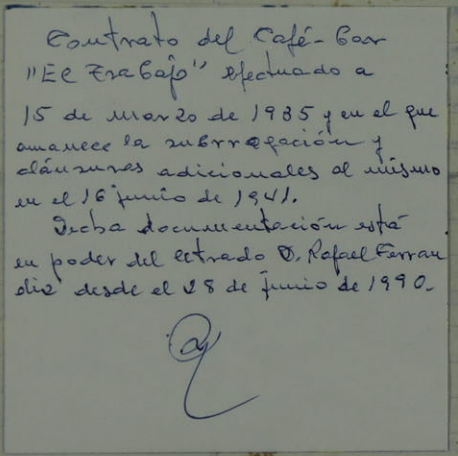 Contrato del Café-bar
"El Trabajo" efectuado a
15 de marzo de 1935 y en el que
amanece la subrrogación y
cláusuras adicionales al mismo
en el 16 junio de 1941.
Dicha documentación está
en poder del letrado D. Rafael Ferran
diz desde el 28 de junio de 1990.